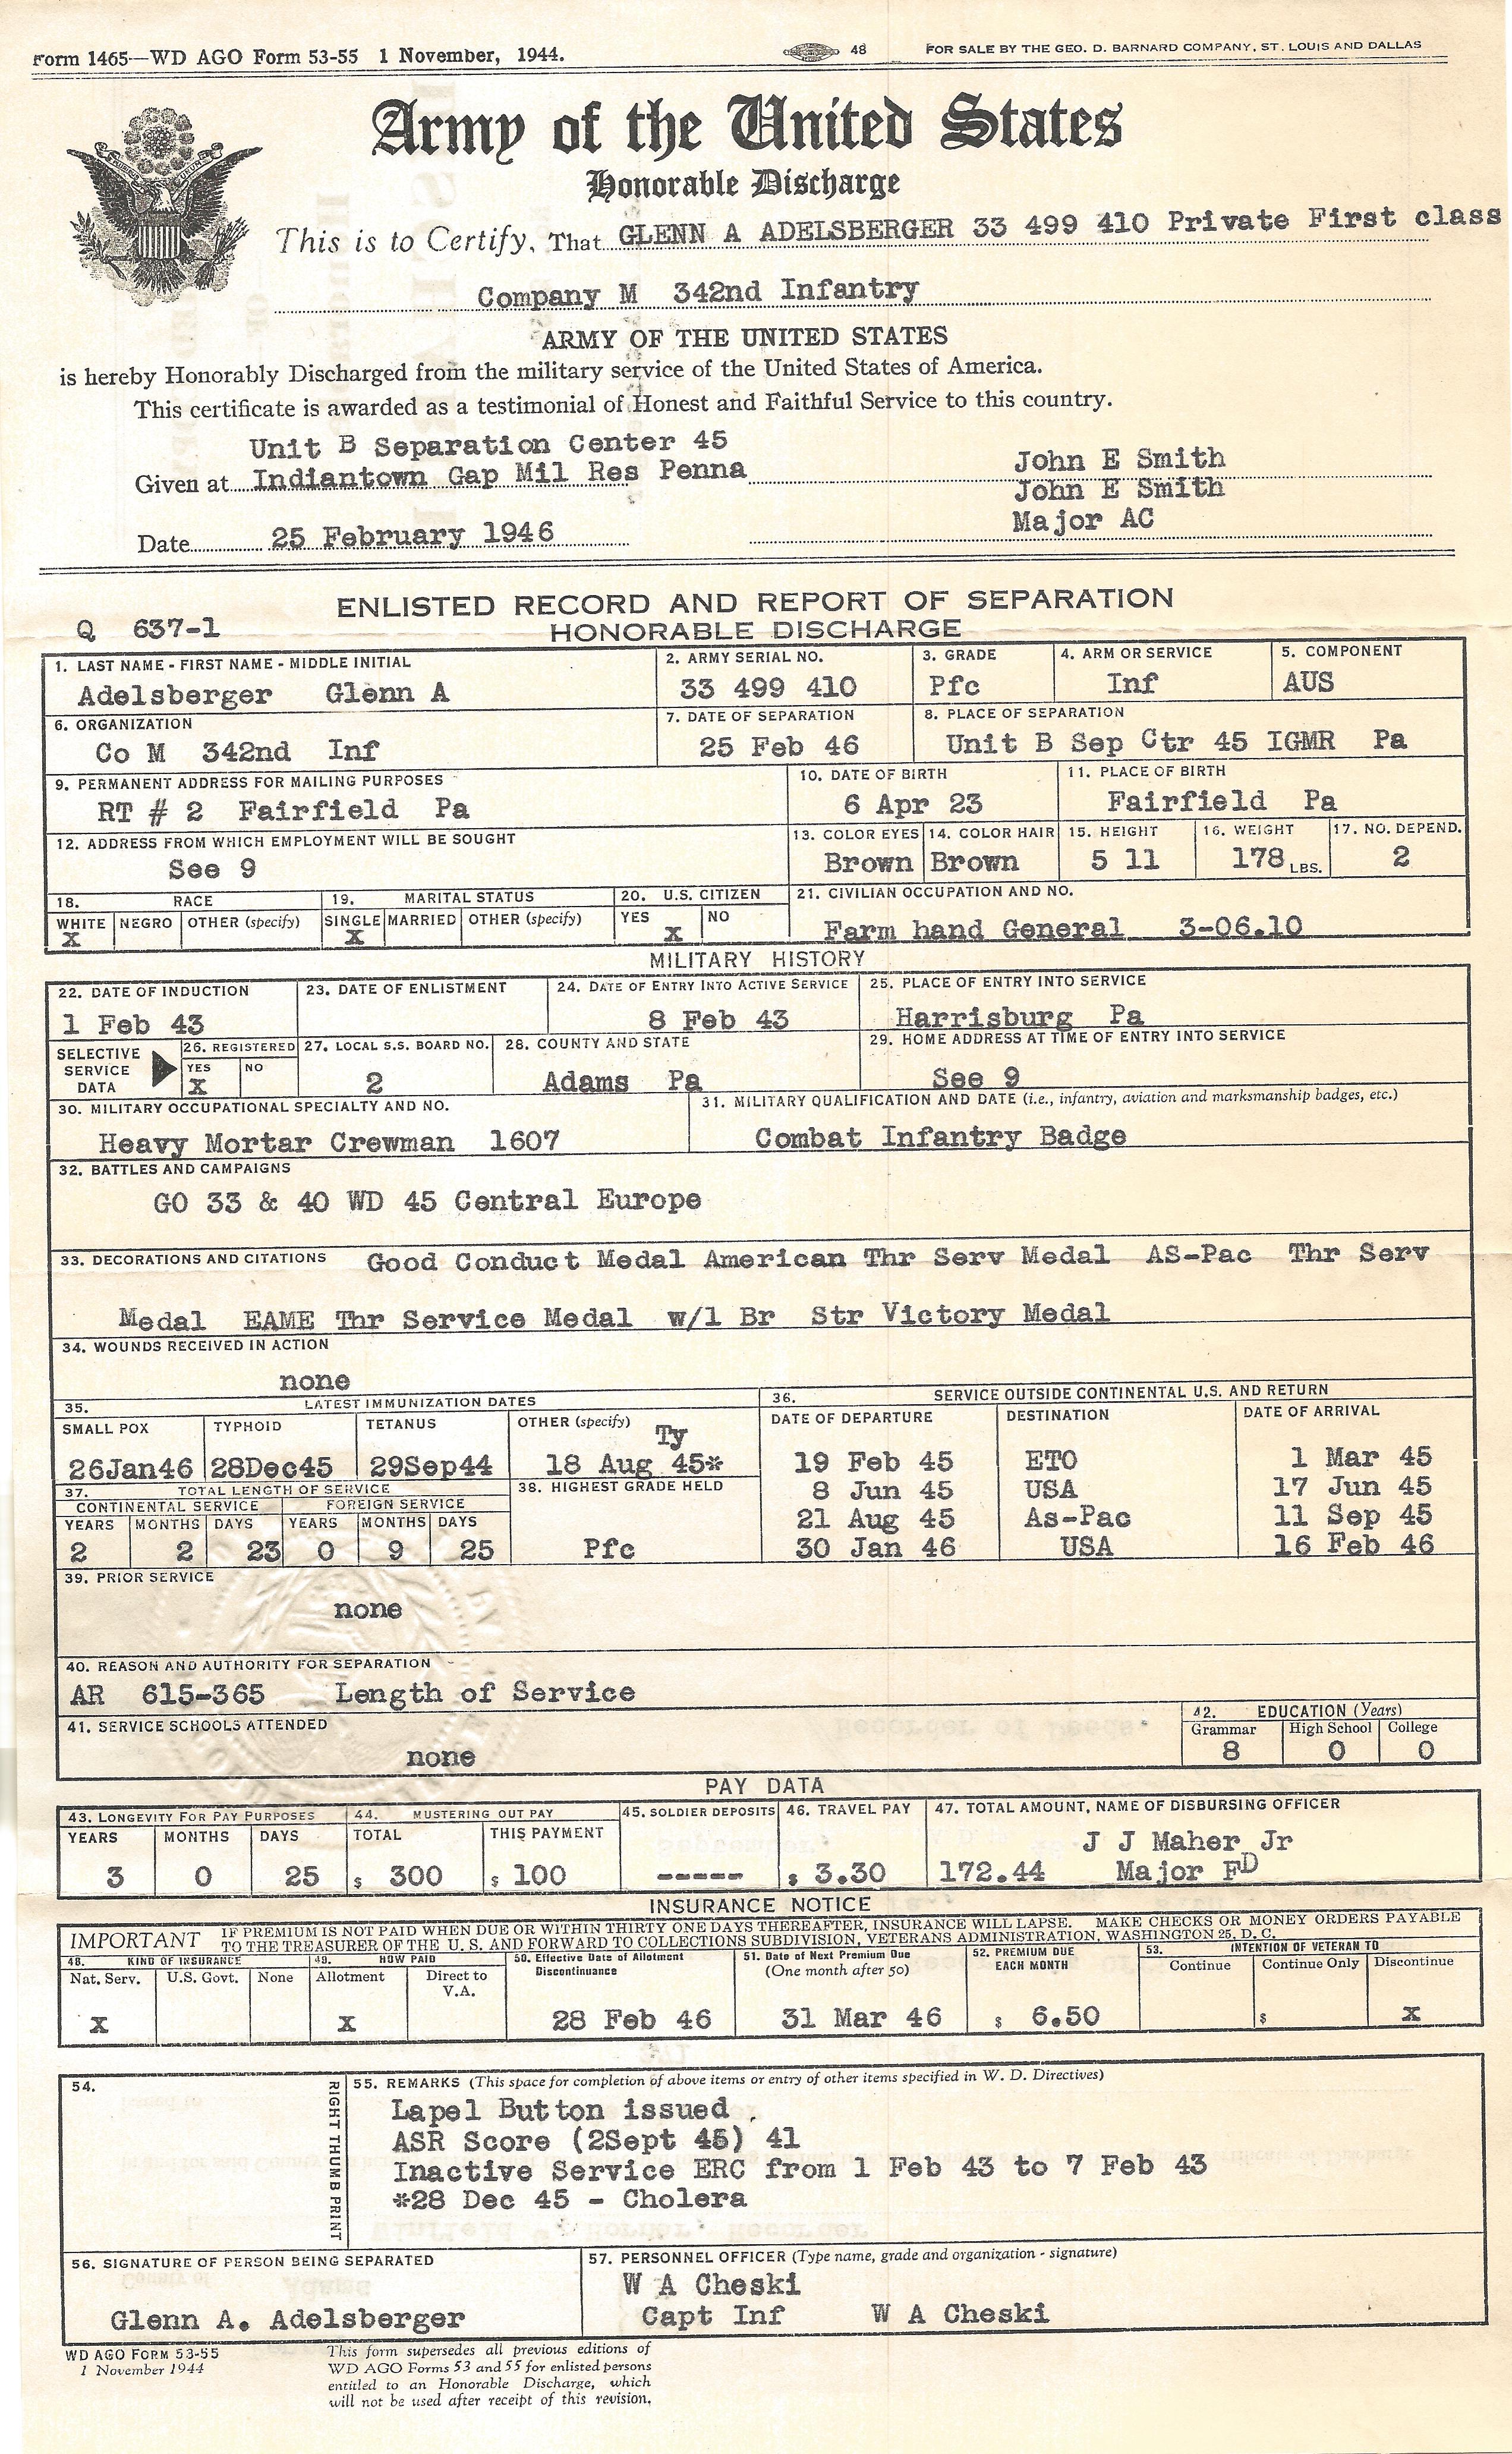 Form 1465—WD AGO Form 53-55 1 November, 1944.
48 FOR SALE BY THE GEO. D. BARNARD COMPANY, ST. LOUIS AND DALLAS
Army of the United States
Honorable Discharge
This is to Certify, That GLENN A ADELSBERGER 33 499 410 Private First class
Company M 342nd Infantry
ARMY OF THE UNITED STATES
is hereby Honorably Discharged from the military service of the United States of America.
This certificate is awarded as a testimonial of Honest and Faithful Service to this country.
Unit B Separation Center 45
Given at Indiantown Gap Mil Res Penna
John E Smith
John E Smith
Major AC
Date 25 February 1946
ENLISTED RECORD AND REPORT OF SEPARATION
Q 637-1 HONORABLE DISCHARGE
1. LAST NAME - FIRST NAME - MIDDLE INITIAL 2. ARMY SERIAL NO. 3. GRADE 4. ARM OR SERVICE 5. COMPONENT
Adelsberger Glenn A 33 499 410 Pfc Inf AUS
6. ORGANIZATION 7. DATE OF SEPARATION 8. PLACE OF SEPARATION
Co M 342nd Inf 25 Feb 46 Unit B Sep Ctr 45 IGMR Pa
9. PERMANENT ADDRESS FOR MAILING PURPOSES 10. DATE OF BIRTH 11. PLACE OF BIRTH
RT # 2 Fairfield Pa 6 Apr 23 Fairfield Pa
12. ADDRESS FROM WHICH EMPLOYMENT WILL BE SOUGHT 13. COLOR EYES 14. COLOR HAIR 15. HEIGHT 16. WEIGHT 17. NO. DEPEND.
See 9 Brown Brown 5 11 178 LBS. 2
18. RACE 19. MARITAL STATUS 20. U.S. CITIZEN 21. CIVILIAN OCCUPATION AND NO.
WHITE NEGRO OTHER (specify) SINGLE MARRIED OTHER (specify) YES NO
X X X Farm hand General 3-06.10
MILITARY HISTORY
22. DATE OF INDUCTION 23. DATE OF ENLISTMENT 24. DATE OF ENTRY INTO ACTIVE SERVICE 25. PLACE OF ENTRY INTO SERVICE
1 Feb 43 8 Feb 43 Harrisburg Pa
SELECTIVE SERVICE DATA 26. REGISTERED 27. LOCAL S.S. BOARD NO. 28. COUNTY AND STATE 29. HOME ADDRESS AT TIME OF ENTRY INTO SERVICE
YES NO
X 2 Adams Pa See 9
30. MILITARY OCCUPATIONAL SPECIALTY AND NO. 31. MILITARY QUALIFICATION AND DATE (i.e., infantry, aviation and marksmanship badges, etc.)
Heavy Mortar Crewman 1607 Combat Infantry Badge
32. BATTLES AND CAMPAIGNS
GO 33 & 40 WD 45 Central Europe
33. DECORATIONS AND CITATIONS Good Conduct Medal American Thr Serv Medal AS-Pac Thr Serv
Medal EAME Thr Service Medal w/1 Br Str Victory Medal
34. WOUNDS RECEIVED IN ACTION
none
35. LATEST IMMUNIZATION DATES 36. SERVICE OUTSIDE CONTINENTAL U.S. AND RETURN
SMALL POX TYPHOID TETANUS OTHER (specify) DATE OF DEPARTURE DESTINATION DATE OF ARRIVAL
Ty
26Jan46 28Dec45 29Sep44 18 Aug 45* 19 Feb 45 ETO 1 Mar 45
37. TOTAL LENGTH OF SERVICE 38. HIGHEST GRADE HELD 8 Jun 45 USA 17 Jun 45
CONTINENTAL SERVICE FOREIGN SERVICE
YEARS MONTHS DAYS YEARS MONTHS DAYS 21 Aug 45 As-Pac 11 Sep 45
2 2 23 0 9 25 Pfc 30 Jan 46 USA 16 Feb 46
39. PRIOR SERVICE
none
40. REASON AND AUTHORITY FOR SEPARATION
AR 615-365 Length of Service
41. SERVICE SCHOOLS ATTENDED 42. EDUCATION (Years)
Grammar High School College
none 8 0 0
PAY DATA
43. LONGEVITY FOR PAY PURPOSES 44. MUSTERING OUT PAY 45. SOLDIER DEPOSITS 46. TRAVEL PAY 47. TOTAL AMOUNT, NAME OF DISBURSING OFFICER
YEARS MONTHS DAYS TOTAL THIS PAYMENT J J Maher Jr
3 0 25 $ 300 $ 100 ----- $ 3.30 172.44 Major FD
INSURANCE NOTICE
IMPORTANT IF PREMIUM IS NOT PAID WHEN DUE OR WITHIN THIRTY ONE DAYS THEREAFTER, INSURANCE WILL LAPSE. MAKE CHECKS OR MONEY ORDERS PAYABLE
TO THE TREASURER OF THE U. S. AND FORWARD TO COLLECTIONS SUBDIVISION, VETERANS ADMINISTRATION, WASHINGTON 25, D. C.
48. KIND OF INSURANCE 49. HOW PAID 50. Effective Date of Allotment Discontinuance 51. Date of Next Premium Due (One month after 50) 52. PREMIUM DUE EACH MONTH 53. INTENTION OF VETERAN TO
Nat. Serv. U.S. Govt. None Allotment Direct to V.A. Continue Continue Only Discontinue
X X 28 Feb 46 31 Mar 46 $ 6.50 $ X
54. RIGHT THUMB PRINT
55. REMARKS (This space for completion of above items or entry of other items specified in W. D. Directives)
Lapel Button issued
ASR Score (2Sept 45) 41
Inactive Service ERC from 1 Feb 43 to 7 Feb 43
*28 Dec 45 - Cholera
56. SIGNATURE OF PERSON BEING SEPARATED 57. PERSONNEL OFFICER (Type name, grade and organization - signature)
W A Cheski
Glenn A. Adelsberger Capt Inf W A Cheski
WD AGO FORM 53-55
1 November 1944
This form supersedes all previous editions of
WD AGO Forms 53 and 55 for enlisted persons
entitled to an Honorable Discharge, which
will not be used after receipt of this revision.